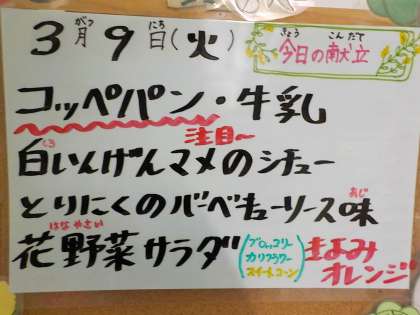 3月9日(火)
がつ にち
きょう こんだて
今日の献立
コッペパン・牛乳
注目〜
しろ
白いんげんマメのシチュー
とりにくのバーベキューソース味
あじ
はな やさい
花野菜サラダ
(ブロッコリー
カリフラワー
スイートコーン)
きよみ
オレンジ